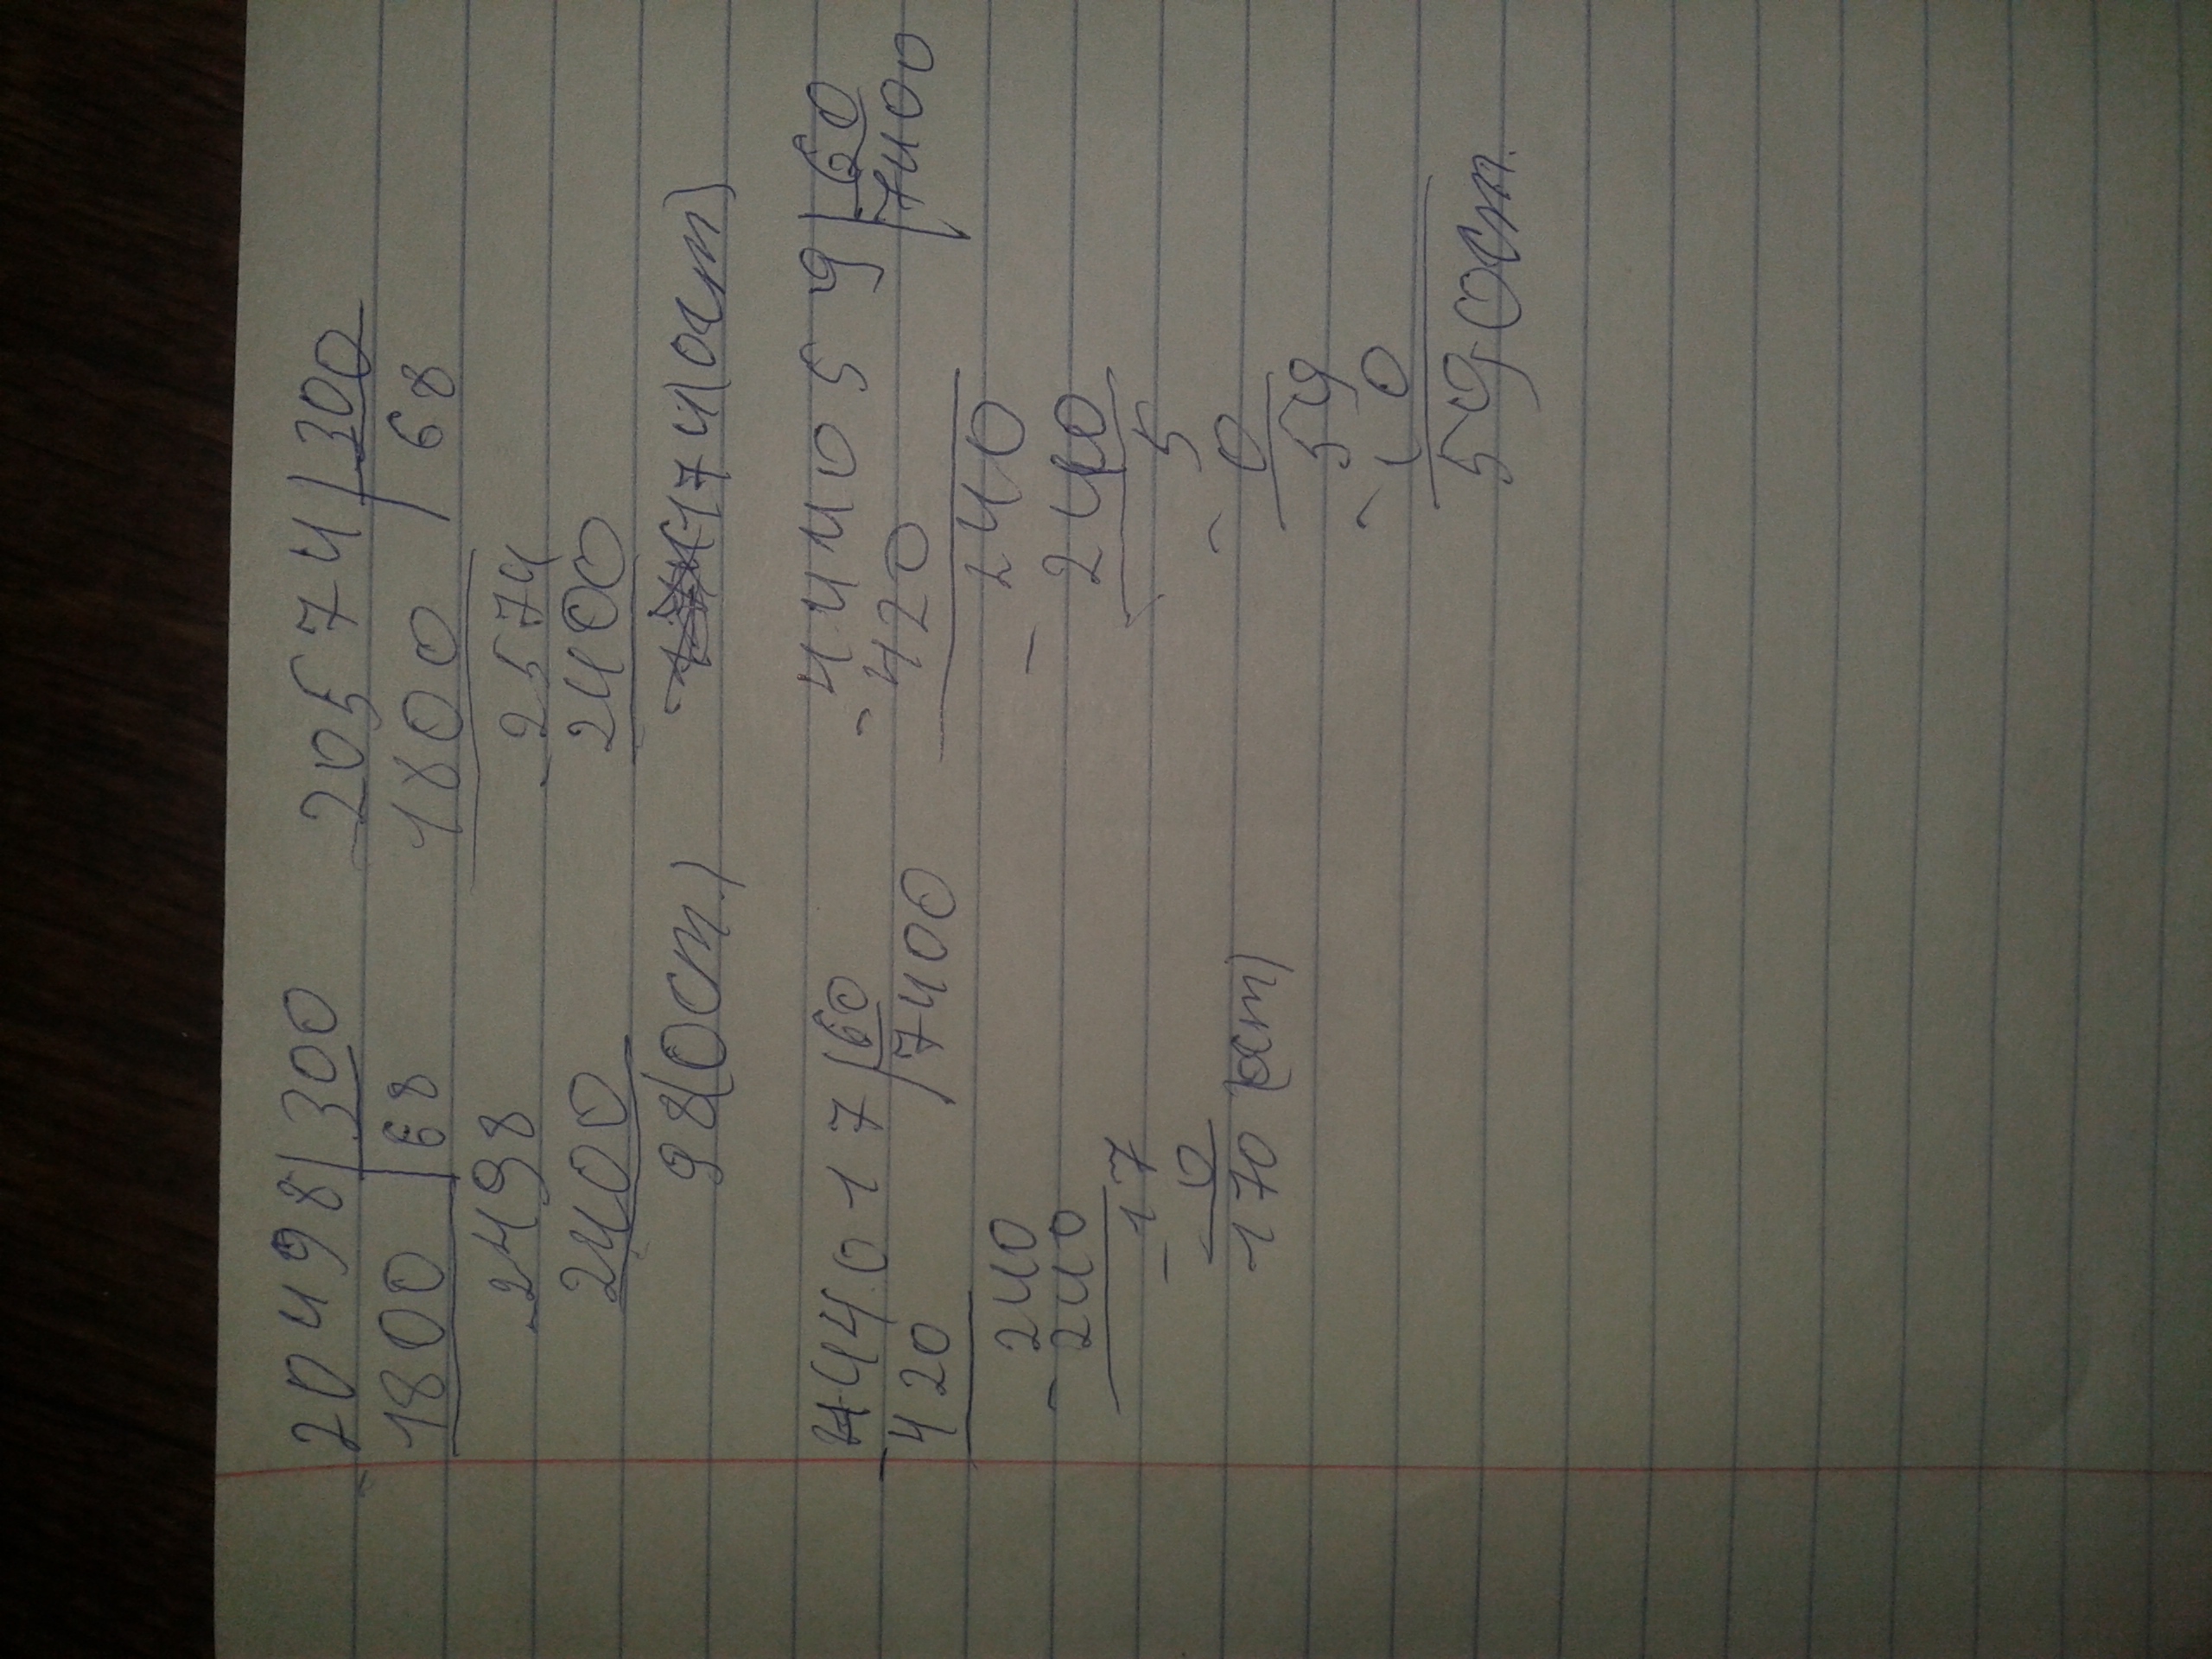 20498 | 300    20574 | 300
1800 | 68    1800 | 68
- 2498    - 2574
2400    2400
98 (ост.)    174 (ост)
444017 | 60    - 444059 | 60
- 420 | 7400    420 | 7400
240    240
- 240    - 240
- 17    5
0    - 0
170 (ост)    59
- 0
59 ост.